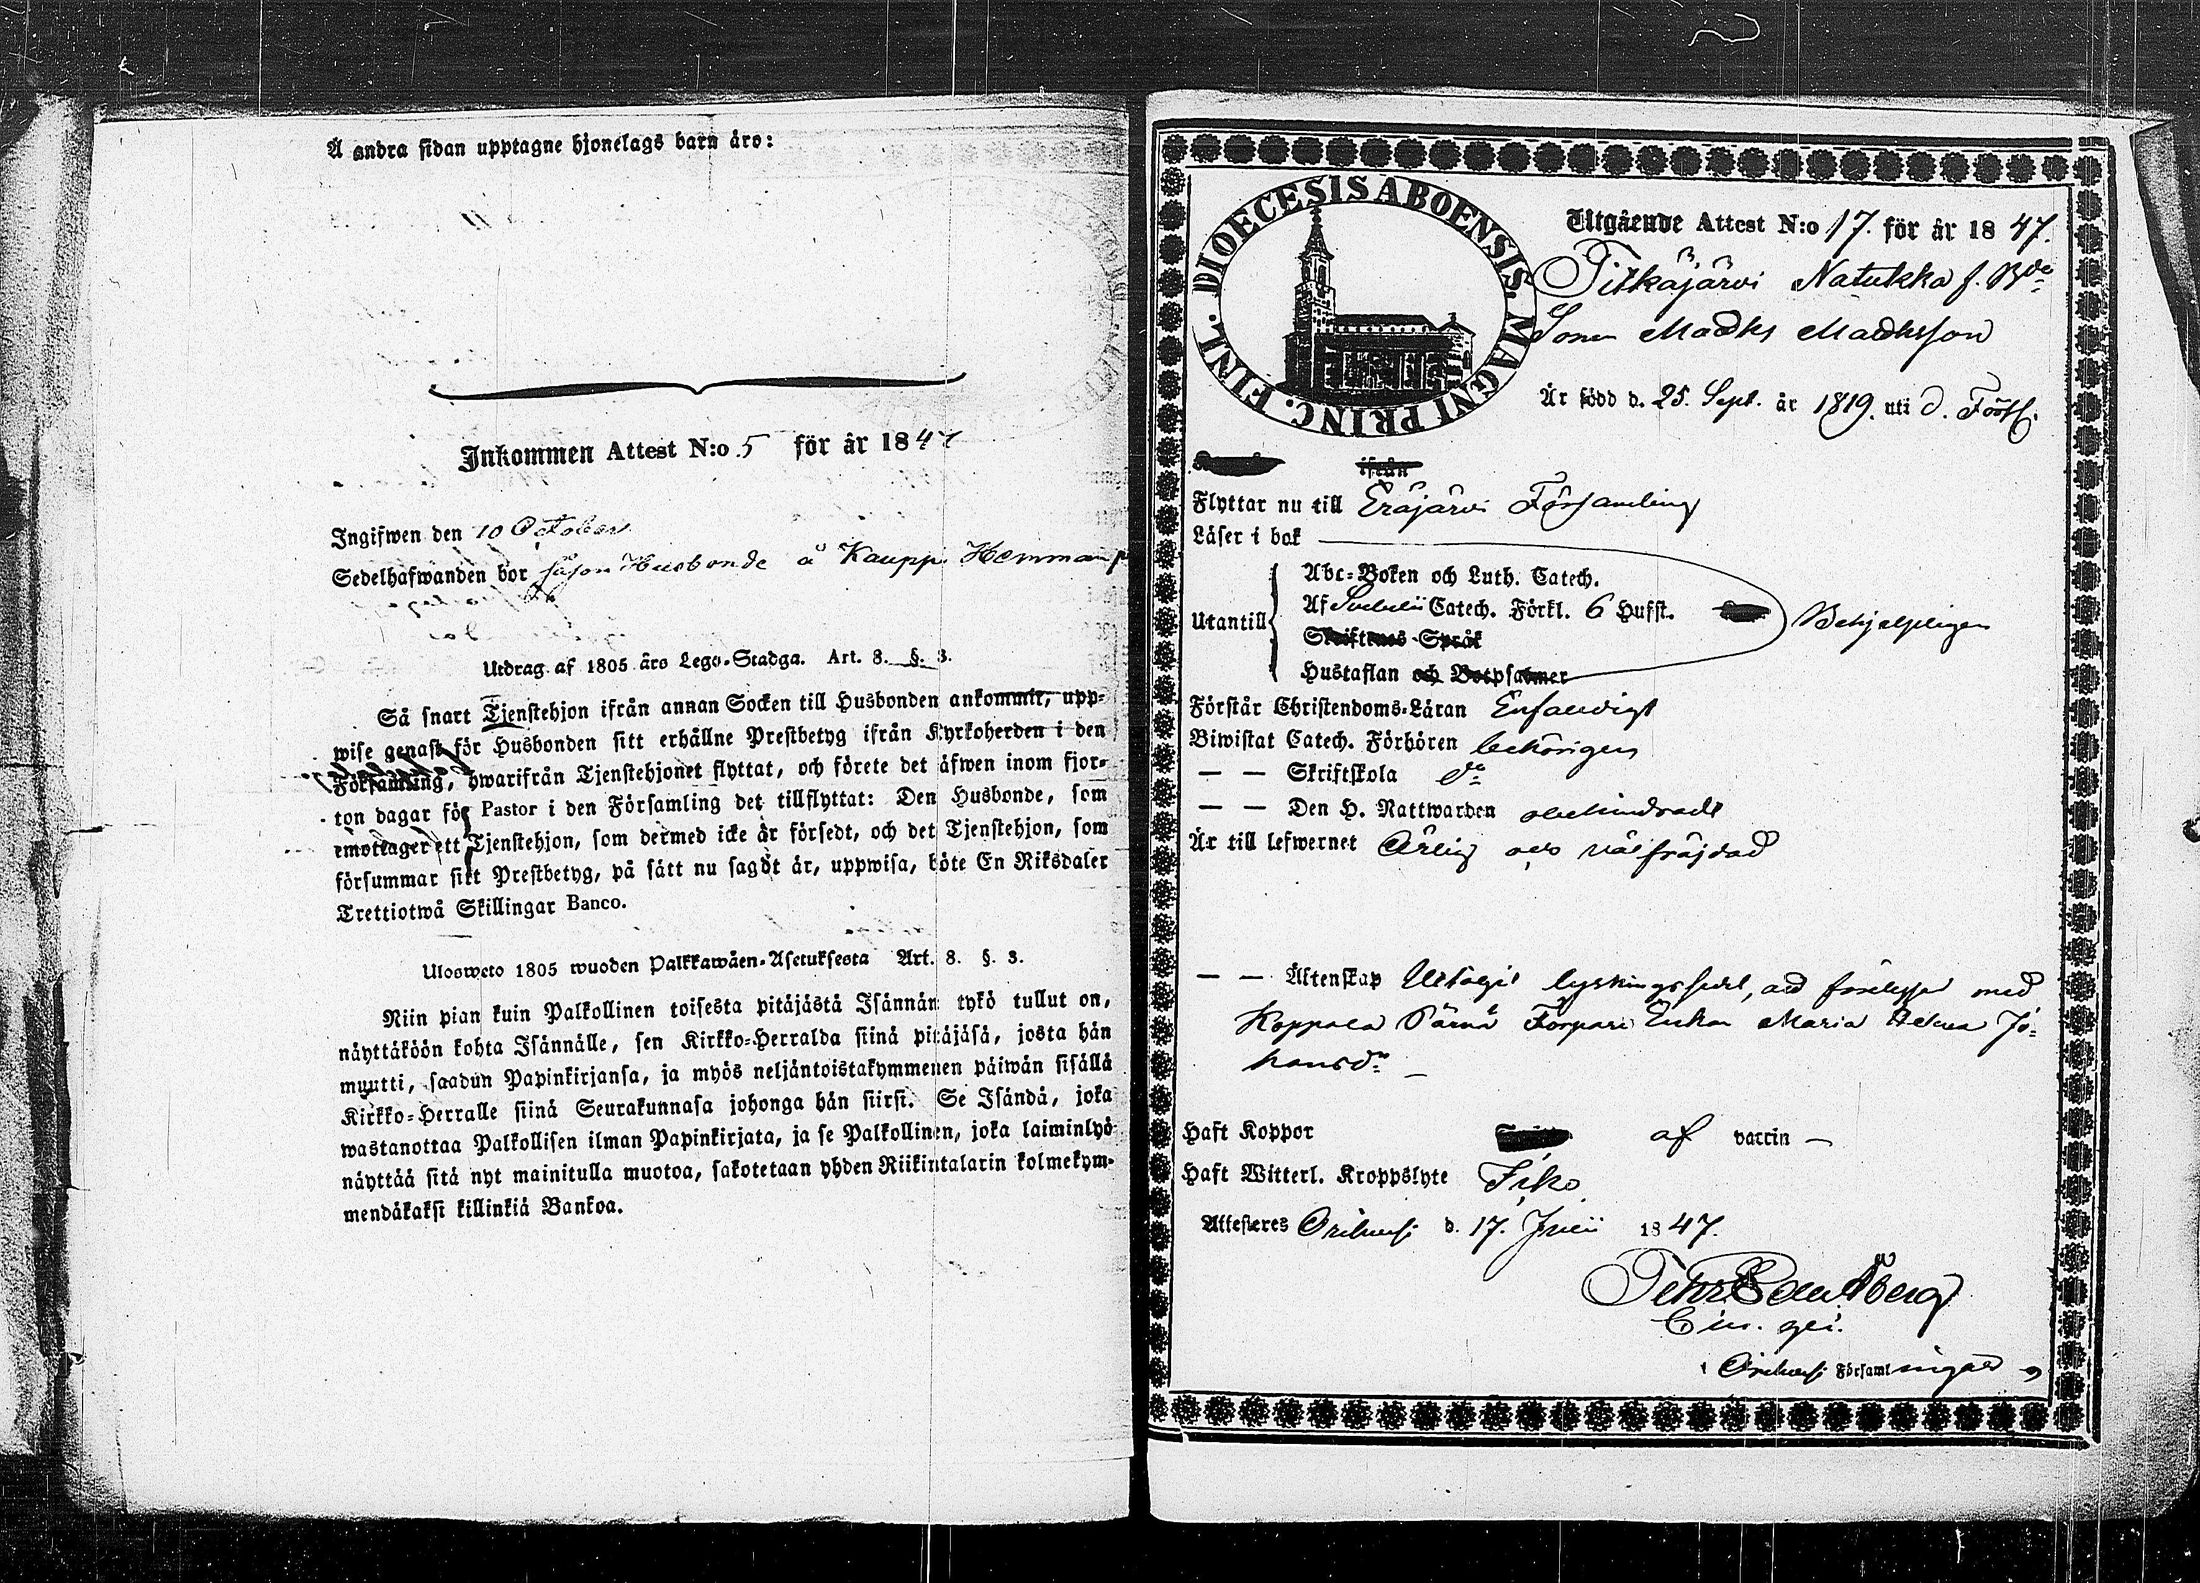 Å andra sidan upptagne hjonelags barn äro:
Inkommen Attest N:o 5 för år 1847
Ingifwen den 10 October
Sedelhafwanden bor såson Husbonde å Kauppi Hemman
Utdrag af 1805 års Lego-Stadga. Art. 8. §. 3.
Så snart Tjenstehjon ifrån annan Socken till Husbonden ankommit, upp-
wise genast för Husbonden sitt erhållne Prestbetyg ifrån Kyrkoherden i den
Församling, hwarifrån Tjenstehjonet flyttat, och förete det äfwen inom fjor-
ton dagar för Pastor i den Församling det tillflyttat: Den Husbonde, som
emottager ett Tjenstehjon, som dermed icke är försedt, och det Tjenstehjon, som
försummar sitt Prestbetyg, på sätt nu sagdt är, uppwisa, böte En Riksdaler
Trettiotwå Skillingar Banco.
Ulosweto 1805 wuoden Palkkawäen-Asetuksesta Art. 8. §. 3.
Niin pian kuin Palkollinen toisesta pitäjästä Isännän tykö tullut on,
näyttäköön kohta Isännälle, sen Kirkko-Herralda siinä pitäjäsä, josta hän
muutti, saadun Papinkirjansa, ja myös neljäntoistakymmenen päiwän sisällä
Kirkko-Herralle siinä Seurakunnasa johonga hän siirsi. Se Isändä, joka
wastanottaa Palkollisen ilman Papinkirjata, ja se Palkollinen, joka laiminlyö
näyttää sitä nyt mainitulla muotoa, sakotetaan yhden Riikintalarin kolmekym-
mendäkaksi killinkiä Bankoa.
DIOECESIS ABOENSIS. MAGNI PRINC. FINL.
Utgående Attest N:o 17. för år 1847.
Pitkäjärvi Natukka f. Bde
Sonen Madhs Madhsson
Är född d. 25. Sept. år 1819. uti d. Förs.
ifrån
Flyttar nu till Eräjärvi Församling
Läser i bok
Abc-Boken och Luth. Catech.
Utantill Af Svebelii Catech. Förkl. 6 Hufst. Behjelpligen
Skriftenes Språk
Hustaflan och Botpsalmer
Förstår Christendoms-Läran Enfaldigt
Biwistat Catech. Förhören behörigen
— — Skriftskola do
— — Den H. Nattwarden obehindradt
Är till lefwernet Ärlig och välfräjdad
— — Äktenskap Uttagit lysningssedel, att förelysa med
Koppala Pärnä Torpare Enkan Maria Helena Jo-
hansdr
Haft Koppor af vaccin —
Haft Witterl. Kroppslyte Icke
Attesteres Orihvesi d. 17. Juli 1847.
Pehr Edv. Åberg
Orihvesi Församlingar